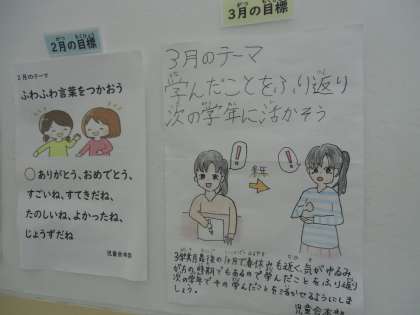 2月の目標
2月のテーマ
ふわふわ言葉をつかおう
○ありがとう、おめでとう、
すごいね、すてきだね、
たのしいね、よかったね、
じょうずだね
児童会本部
3月の目標
3月のテーマ
学んだことをふり返り
次の学年に活かそう
!!
来年
!!
3学期最後の1ヶ月で春休みも近く、気がゆるみ
がちの時期でもあるので学んだことをふり返り
次の学年でその学んだことを活かせるようにしま
しょう。
児童会本部